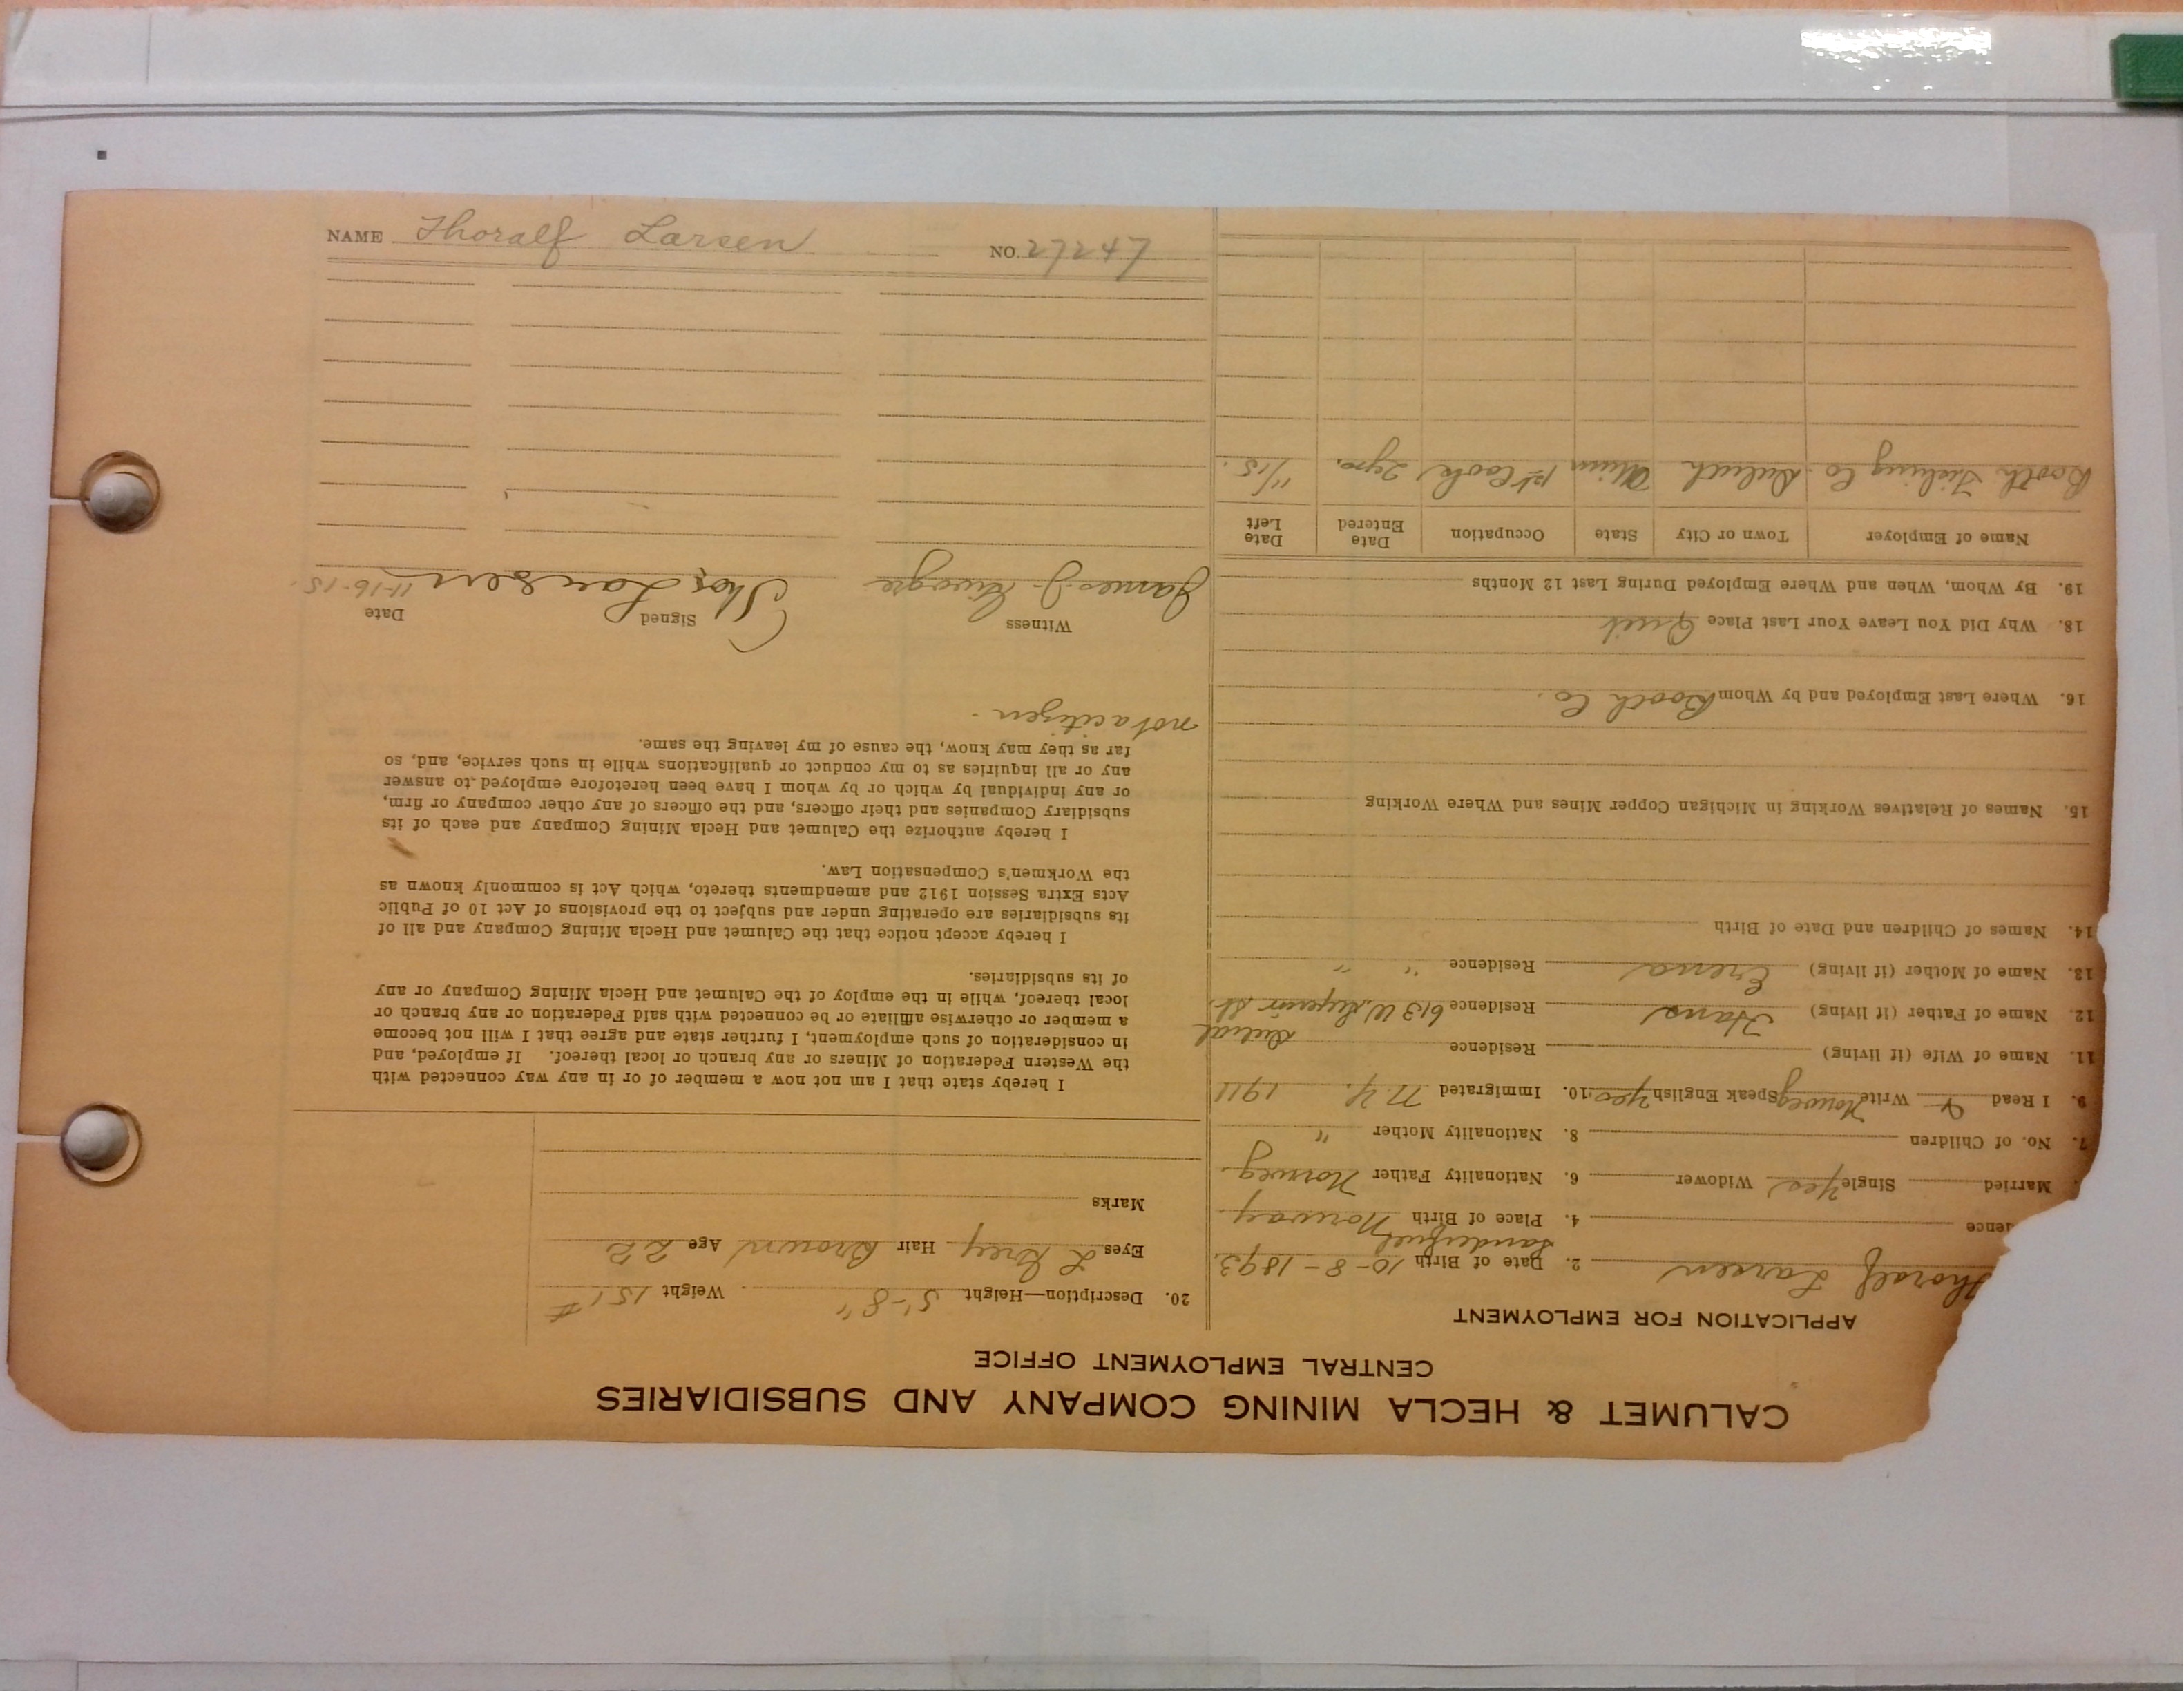 NAME Thoralf Larsen NO. 27247
CALUMET & HECLA MINING COMPANY AND SUBSIDIARIES
CENTRAL EMPLOYMENT OFFICE
APPLICATION FOR EMPLOYMENT
Thoralf Larsen 2. Date of Birth 10-8-1893
dence 4. Place of Birth Norway
Married Single Yes Widower 6. Nationality Father Norweg
7. No. of Children 8. Nationality Mother "
9. I Read & Write Norweg Speak English Yes 10. Immigrated N.Y. 1911
11. Name of Wife (if living) Residence
12. Name of Father (if living) Hans Residence 613 W. Superior St. Duluth
13. Name of Mother (if living) Residence " "
14. Names of Children and Date of Birth
15. Names of Relatives Working in Michigan Copper Mines and Where Working
16. Where Last Employed and by Whom Booth Co.
18. Why Did You Leave Your Last Place Quit
19. By Whom, When and Where Employed During Last 12 Months
Name of Employer Town or City State Occupation Date Entered Date Left
Booth Fishing Co. Duluth Minn 1st Cook 2 yrs. 11/15.
20. Description—Height 5'-8" Weight 151#
Eyes L Grey Hair Brown Age 22
Marks
I hereby state that I am not now a member of or in any way connected with
the Western Federation of Miners or any branch or local thereof. If employed, and
in consideration of such employment, I further state and agree that I will not become
a member or otherwise affiliate or be connected with said Federation or any branch or
local thereof, while in the employ of the Calumet and Hecla Mining Company or any
of its subsidiaries.
I hereby accept notice that the Calumet and Hecla Mining Company and all of
its subsidiaries are operating under and subject to the provisions of Act 10 of Public
Acts Extra Session 1912 and amendments thereto, which Act is commonly known as
the Workmen's Compensation Law.
I hereby authorize the Calumet and Hecla Mining Company and each of its
subsidiary Companies and their officers, and the officers of any other company or firm,
or any individual by which or by whom I have been heretofore employed to answer
any or all inquiries as to my conduct or qualifications while in such service, and, so
far as they may know, the cause of my leaving the same.
not a citizen.
Witness Signed Date
James J. Thor Larsen 11-16-15.